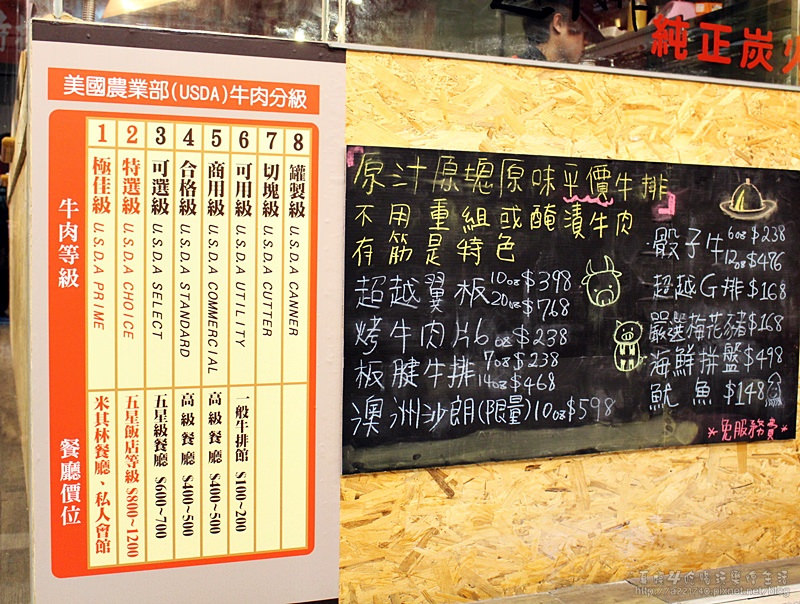 純正炭火
美國農業部(USDA)牛肉分級
牛肉等級
餐廳價位
1 極佳級 U.S.D.A PRIME 米其林餐廳、私人會館
2 特選級 U.S.D.A CHOICE 五星飯店等級 $800~1200
3 可選級 U.S.D.A SELECT 五星級餐廳 $600~700
4 合格級 U.S.D.A STANDARD 高級餐廳 $400~500
5 商用級 U.S.D.A COMMERCIAL 高級餐廳 $400~500
6 可用級 U.S.D.A UTILITY 一般牛排館 $100~200
7 切塊級 U.S.D.A CUTTER
8 罐製級 U.S.D.A CANNER
原汁原塊原味平價牛排
不用重組或醃漬牛肉
有筋是特色
超越翼板 10oz $398
20oz $768
烤牛肉片 6oz $238
板腱牛排 7oz $238
14oz $468
澳洲沙朗(限量) 10oz $598
骰子牛 6oz $238
12oz $476
超越G排 $168
嚴選梅花豬 $168
海鮮拼盤 $498
魷魚 $148
*免服務費*